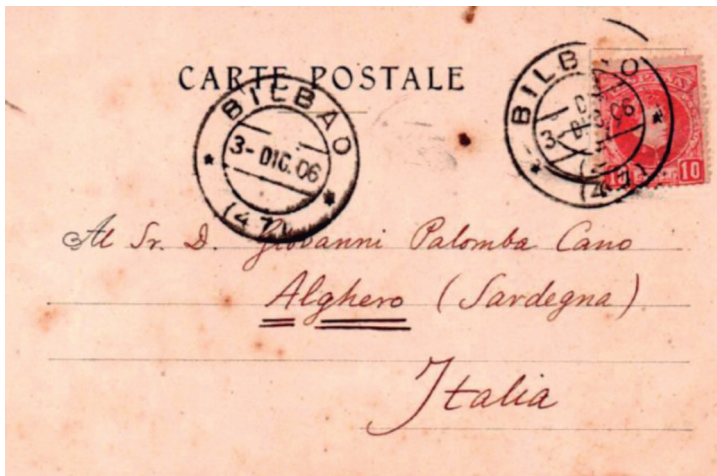 CARTE POSTALE
BILBAO
3- DIC. 06
(47)
BILBAO
3- DIC. 06
10
Al Sr. D. Giovanni Palomba Cano
Alghero (Sardegna)
Italia